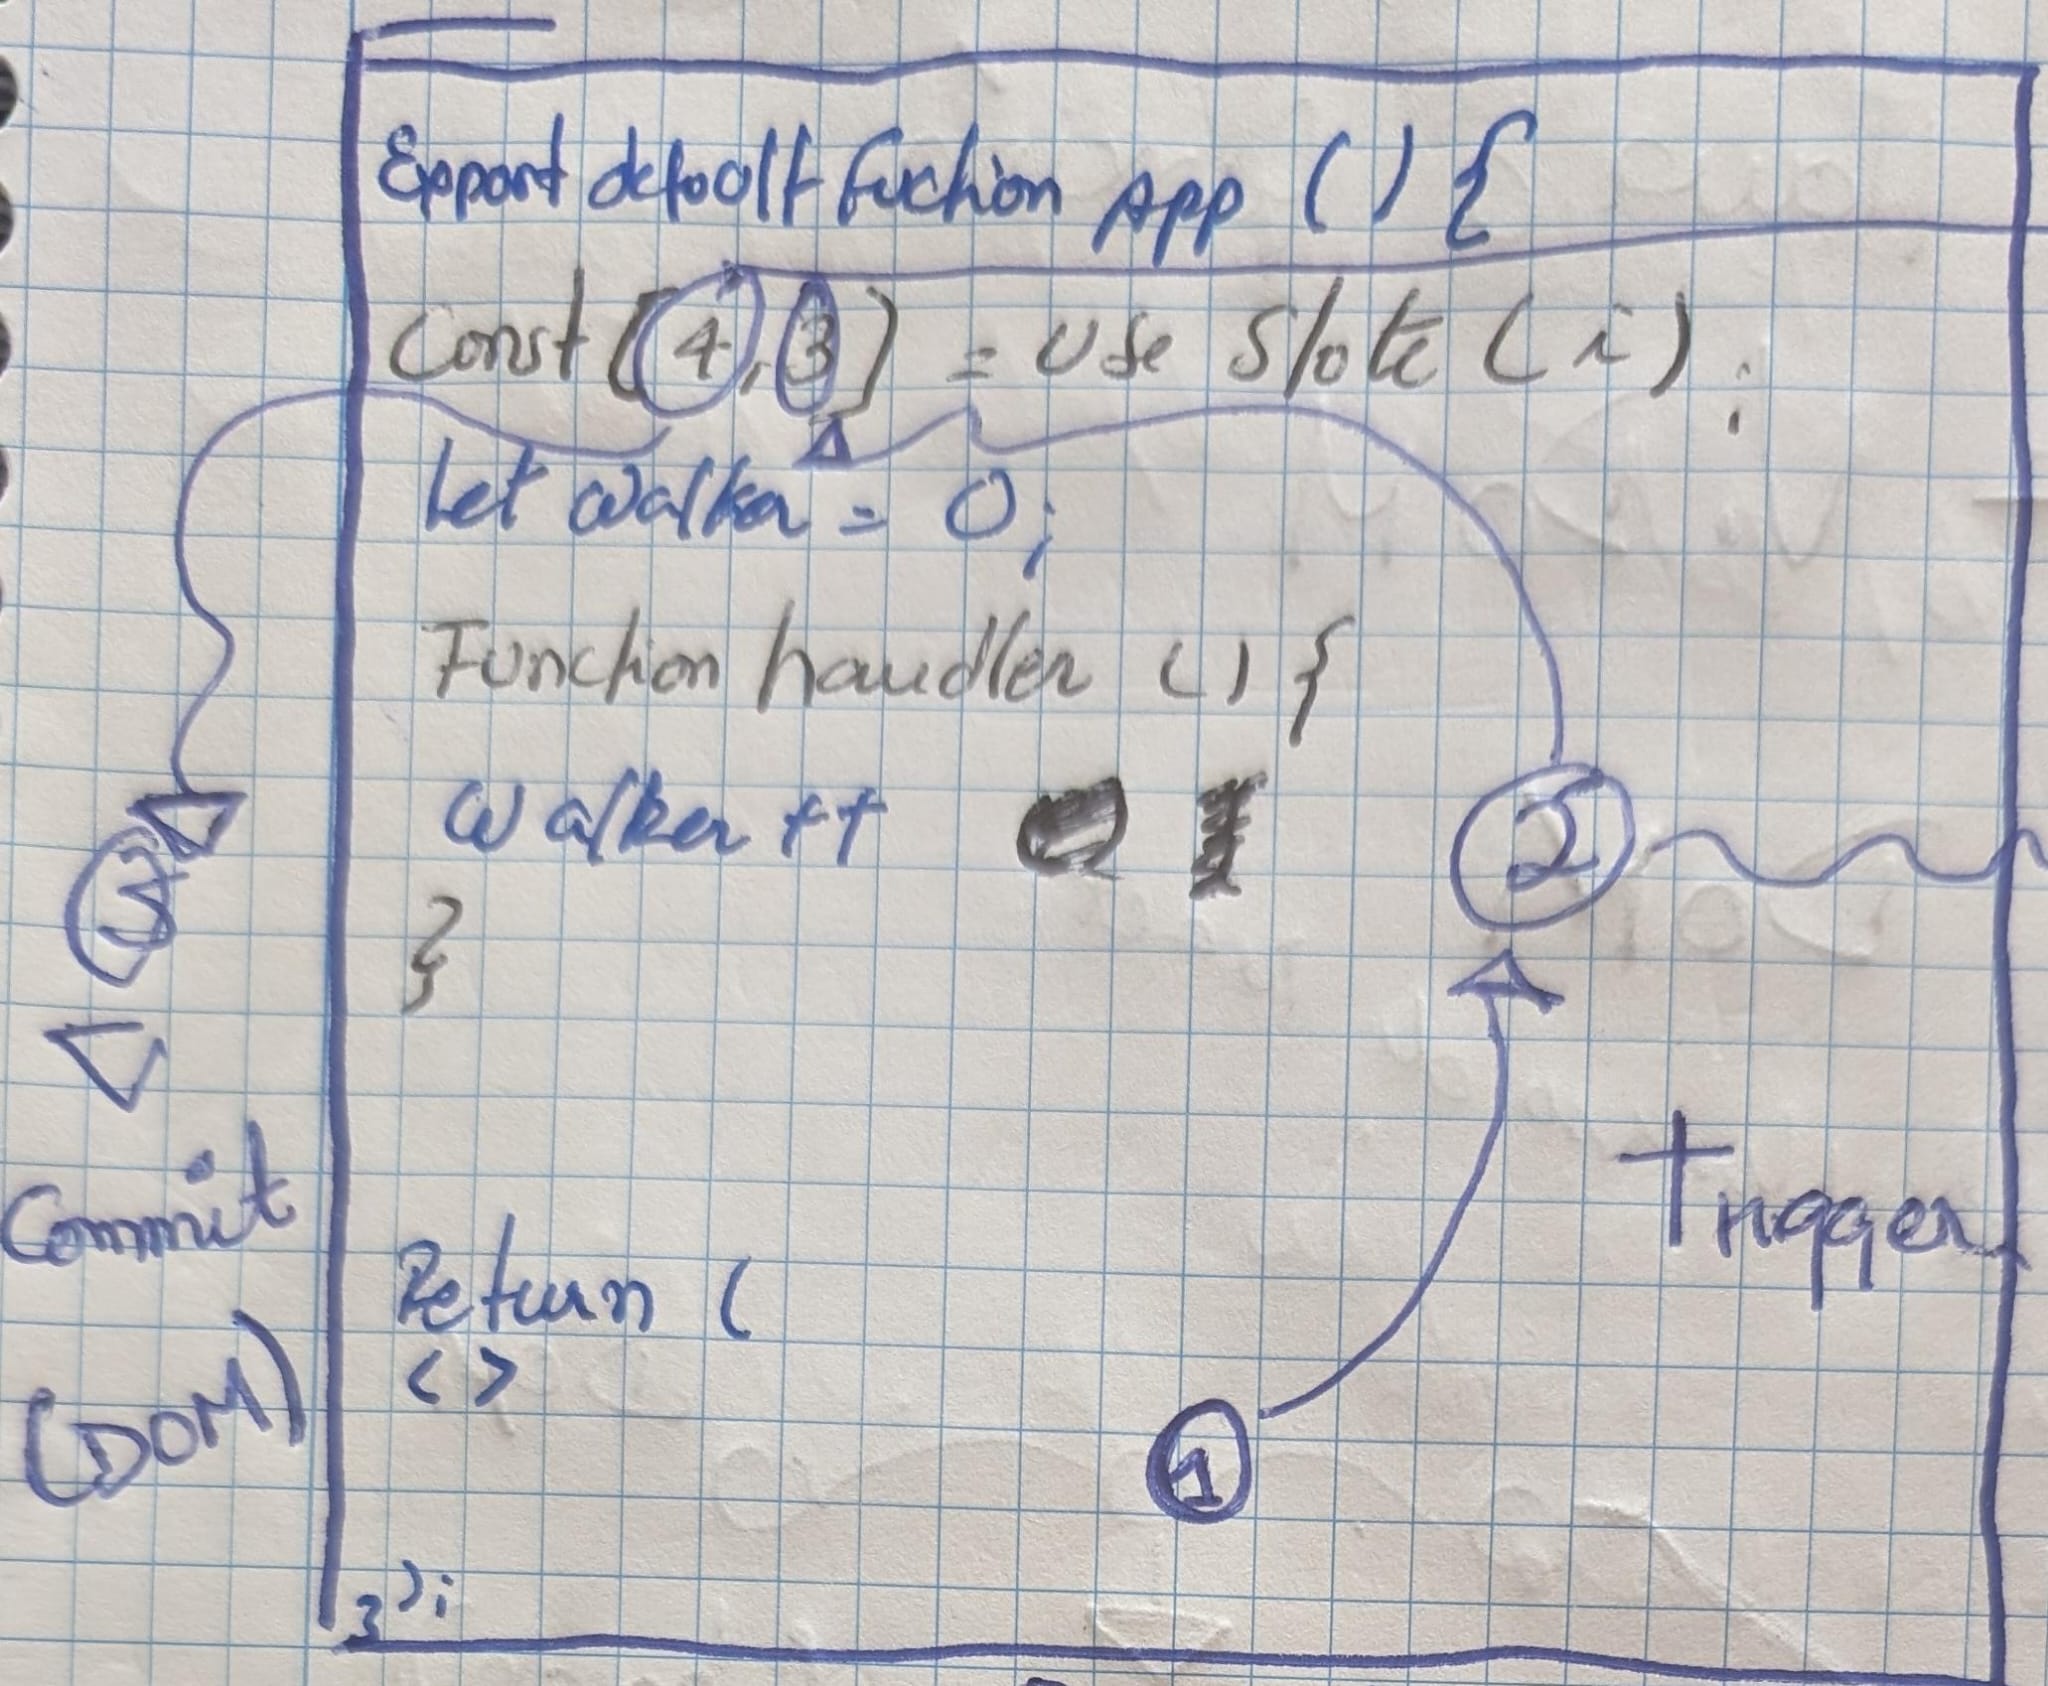 Export default fuction App () {
Const [4,3] = use State (i);
let walker = 0;
Function handler () {
walker ++
}
2
3
Trigger
Commit
(DOM)
Return (
< >
1
);
}